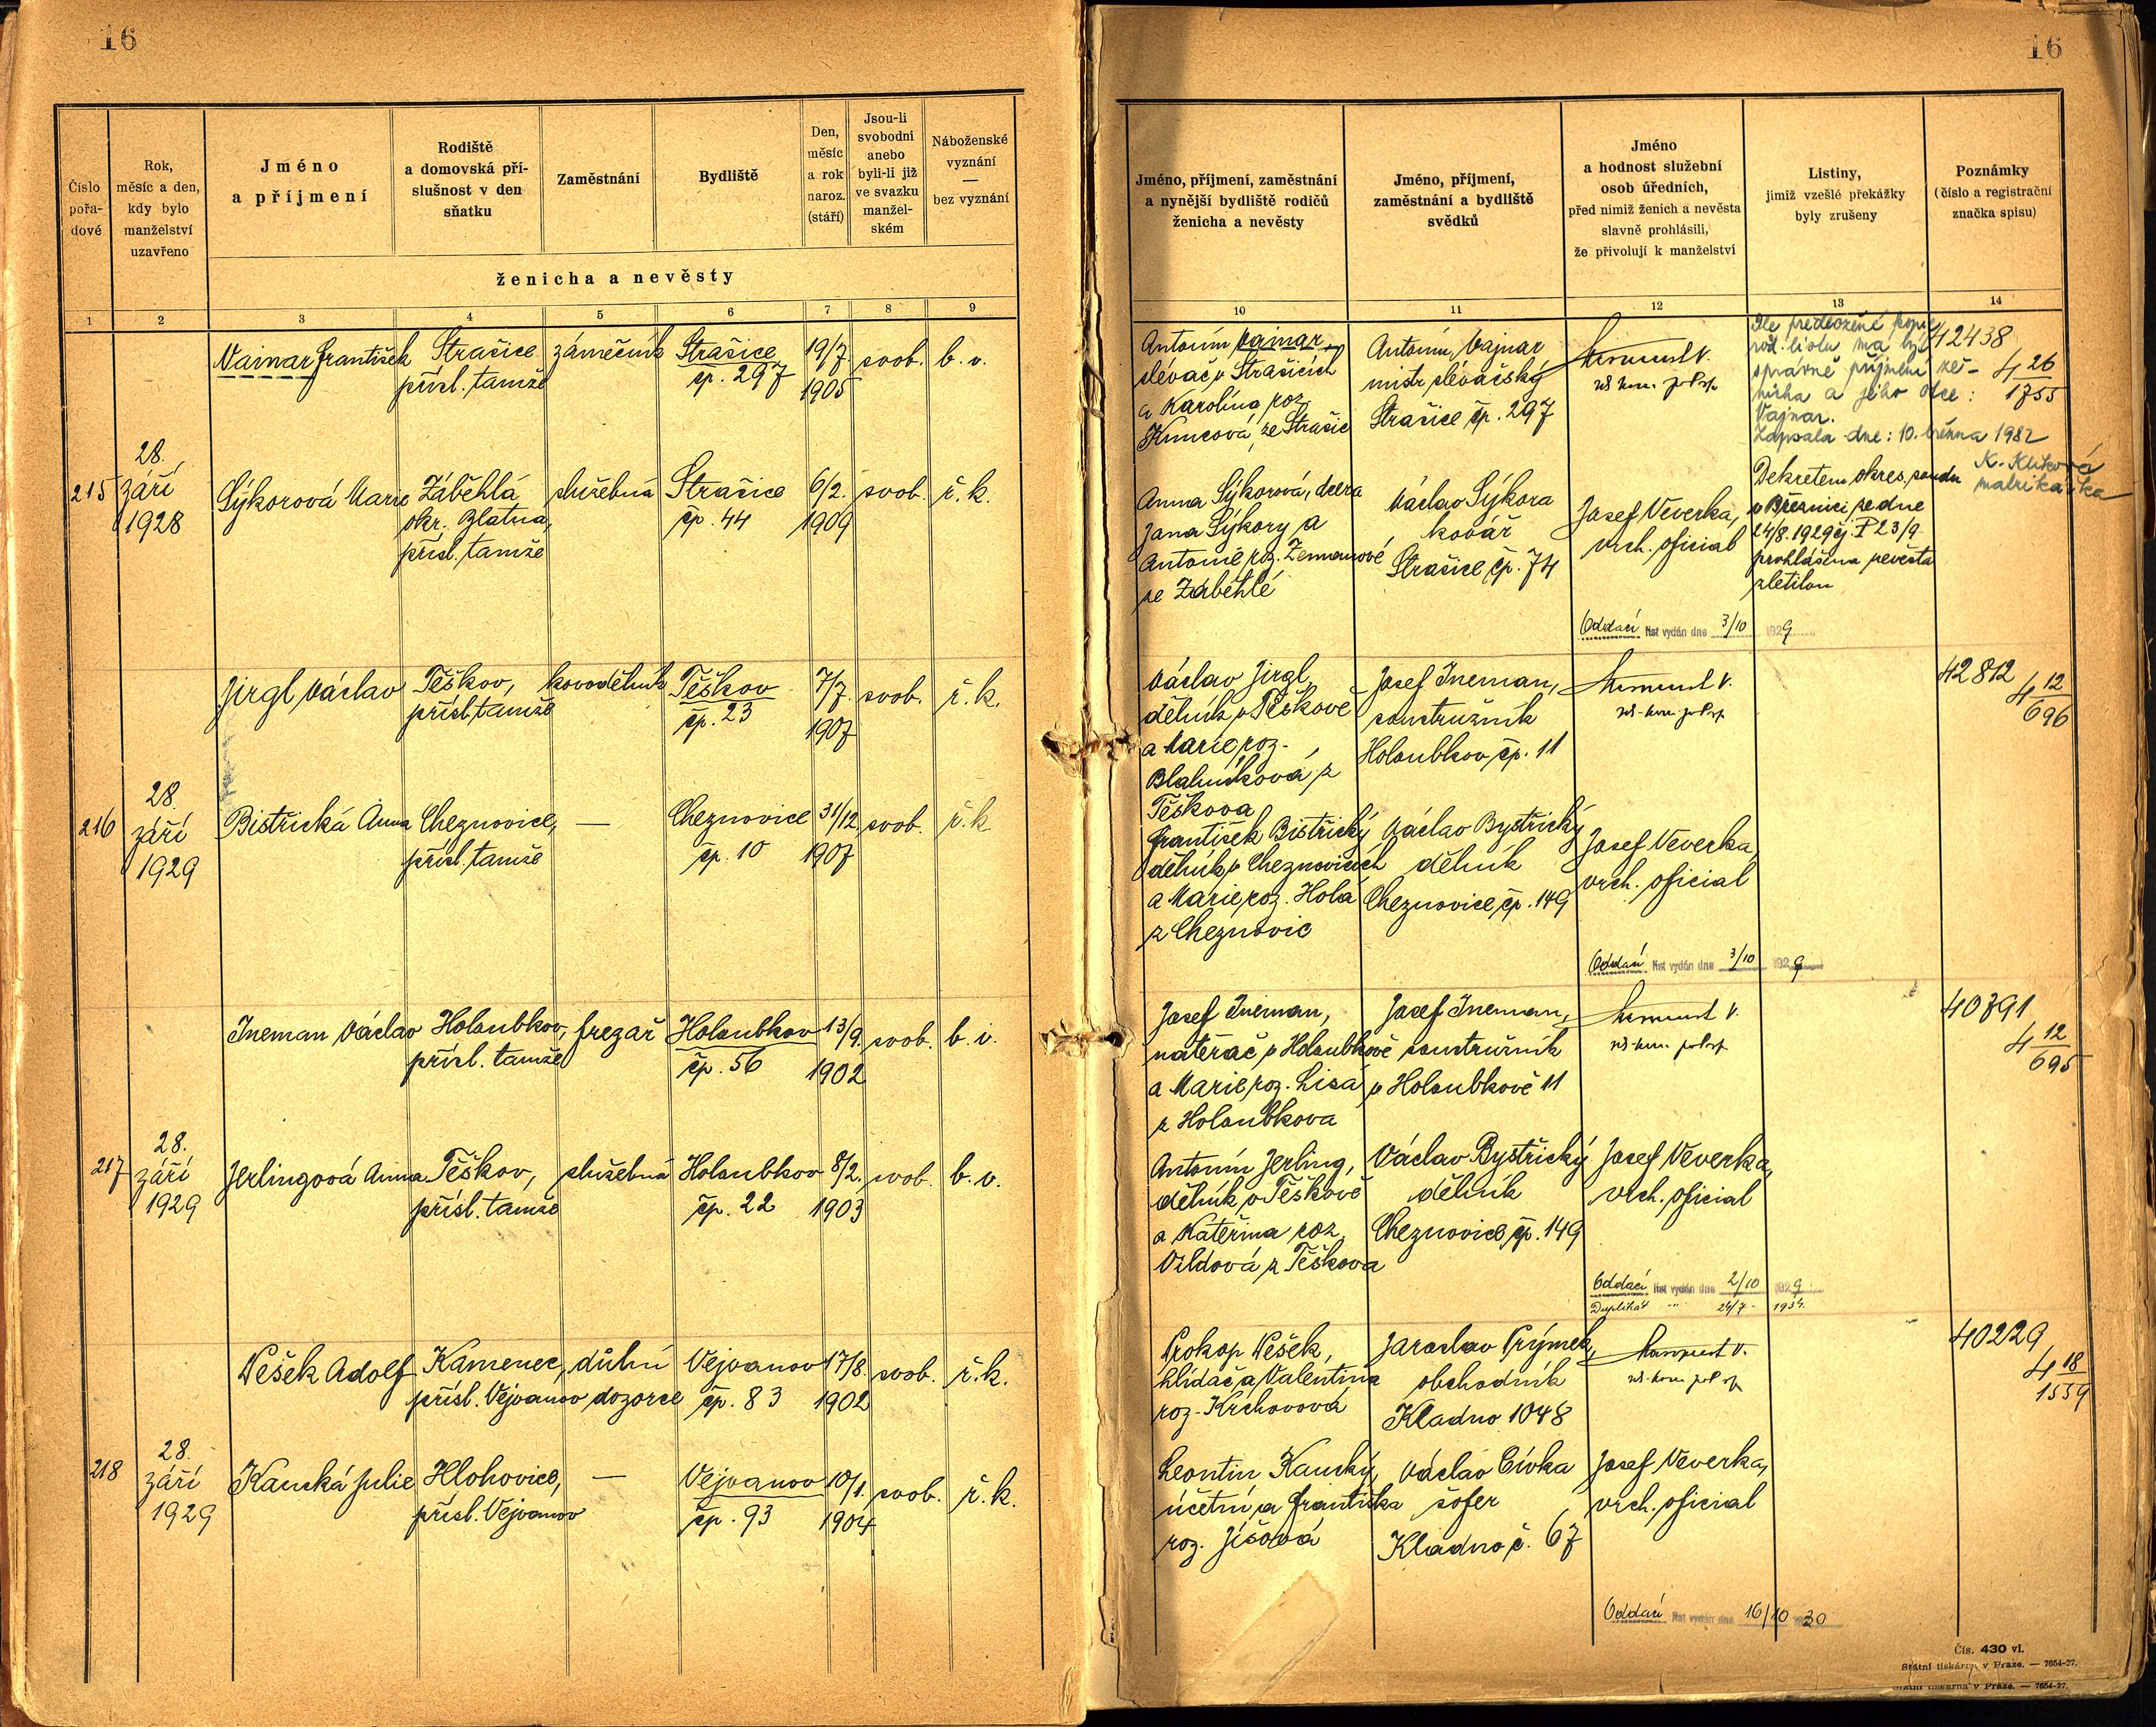 16
16
Číslo
pořa-
dové
Rok,
měsíc a den,
kdy bylo
manželství
uzavřeno
Jméno
a příjmení
Rodiště
a domovská pří-
slušnost v den
sňatku
Zaměstnání
Bydliště
Den,
měsíc
a rok
naroz.
(stáří)
Jsou-li
svobodni
anebo
byli-li již
ve svazku
manžel-
ském
Náboženské
vyznání
—
bez vyznání
ženicha a nevěsty
1 2 3 4 5 6 7 8 9
Jméno, příjmení, zaměstnání
a nynější bydliště rodičů
ženicha a nevěsty
Jméno, příjmení,
zaměstnání a bydliště
svědků
Jméno
a hodnost služební
osob úředních,
před nimiž ženich a nevěsta
slavně prohlásili,
že přivolují k manželství
Listiny,
jimiž vzešlé překážky
byly zrušeny
Poznámky
(číslo a registrační
značka spisu)
10 11 12 13 14
Vainar František
Strašice
přísl. tamže
zámečník
Strašice
čp. 297
19/7.
1905
svob.
b. v.
Antonín Vainar,
slévač v Strašicích
a Karolína roz.
Kuncová, ze Strašic
Antonín Vajnar
mistr slévačský
Strašice čp. 297
Dle předložené kopie
rod. listu má být
správně příjmení že-
nicha a jeho otce:
Vajnar.
Zapsala dne: 10. března 1982
K. Klíková
matrikářka
42438
4 26
1755
215
28.
září
1928
Sýkorová Marie
Záběhlá
okr. Blatná,
přísl. tamže
služebná
Strašice
čp. 44
6/2.
1909
svob.
ř. k.
Anna Sýkorová, dcera
Jana Sýkory a
Antonie roz. Zemanové
ze Záběhlé
Václav Sýkora
kovář
Strašice čp. 74
Josef Veverka,
vrch. oficial
Dekretem okres. soudu
v Březnici ze dne
24/8. 1929 čj. P 23/9
prohlášena nevěsta
zletilou
Oddací list vydán dne 3/10 1929
Jirgl Václav
Těškov,
přísl. tamže
kovodělník
Těškov
čp. 23
7/7.
1907
svob.
ř. k.
Václav Jirgl,
dělník v Těškově
a Marie roz.
Blahníková z
Těškova
Josef Ineman,
soustružník
Holoubkov čp. 11
42812
4 12
696
216
28.
září
1929
Bistřická Anna
Cheznovice,
přísl. tamže
—
Cheznovice
čp. 10
31/12.
1907
svob.
ř. k.
František Bistřický
dělník v Cheznovicích
a Marie roz. Holá
z Cheznovic
Václav Bystřický
dělník
Cheznovice čp. 149
Josef Veverka,
vrch. oficial
Oddací list vydán dne 3/10 1929
Ineman Václav
Holoubkov,
přísl. tamže
frezař
Holoubkov
čp. 56
13/9.
1902
svob.
b. v.
Josef Ineman,
natěrač v Holoubkově
a Marie roz. Lisá
z Holoubkova
Josef Ineman,
soustružník
v Holoubkově 11
40791
4 12
695
217
28.
září
1929
Jerlingová Anna
Těškov,
přísl. tamže
služebná
Holoubkov
čp. 22
8/2.
1903
svob.
b. v.
Antonín Jerling,
dělník v Těškově
a Kateřina roz.
Vildová z Těškova
Václav Bystřický
dělník
Cheznovice čp. 149
Josef Veverka,
vrch. oficial
Oddací list vydán dne 2/10 1929
Duplikát " 24/7 - 1934.
Pešek Adolf
Kamenec,
přísl. Vejvanov
důlní
dozorce
Vejvanov
čp. 83
17/8.
1902
svob.
ř. k.
Prokop Pešek,
hlídač a Valentina
roz. Krchovová
Jaroslav Prýmek,
obchodník
Kladno 1048
40229
4 18
1559
218
28.
září
1929
Kanská Julie
Hlohovice,
přísl. Vejvanov
—
Vejvanov
čp. 93
10/1.
1904
svob.
ř. k.
Leontin Kanský,
účetní a Františka
roz. Jíšová
Václav Cívka
šofer
Kladno č. 67
Josef Veverka,
vrch. oficial
Oddací list vydán dne 16/10 1930
Čís. 430 vl.
Státní tiskárna v Praze. — 7654-27.
Státní tiskárna v Praze. — 7654-27.